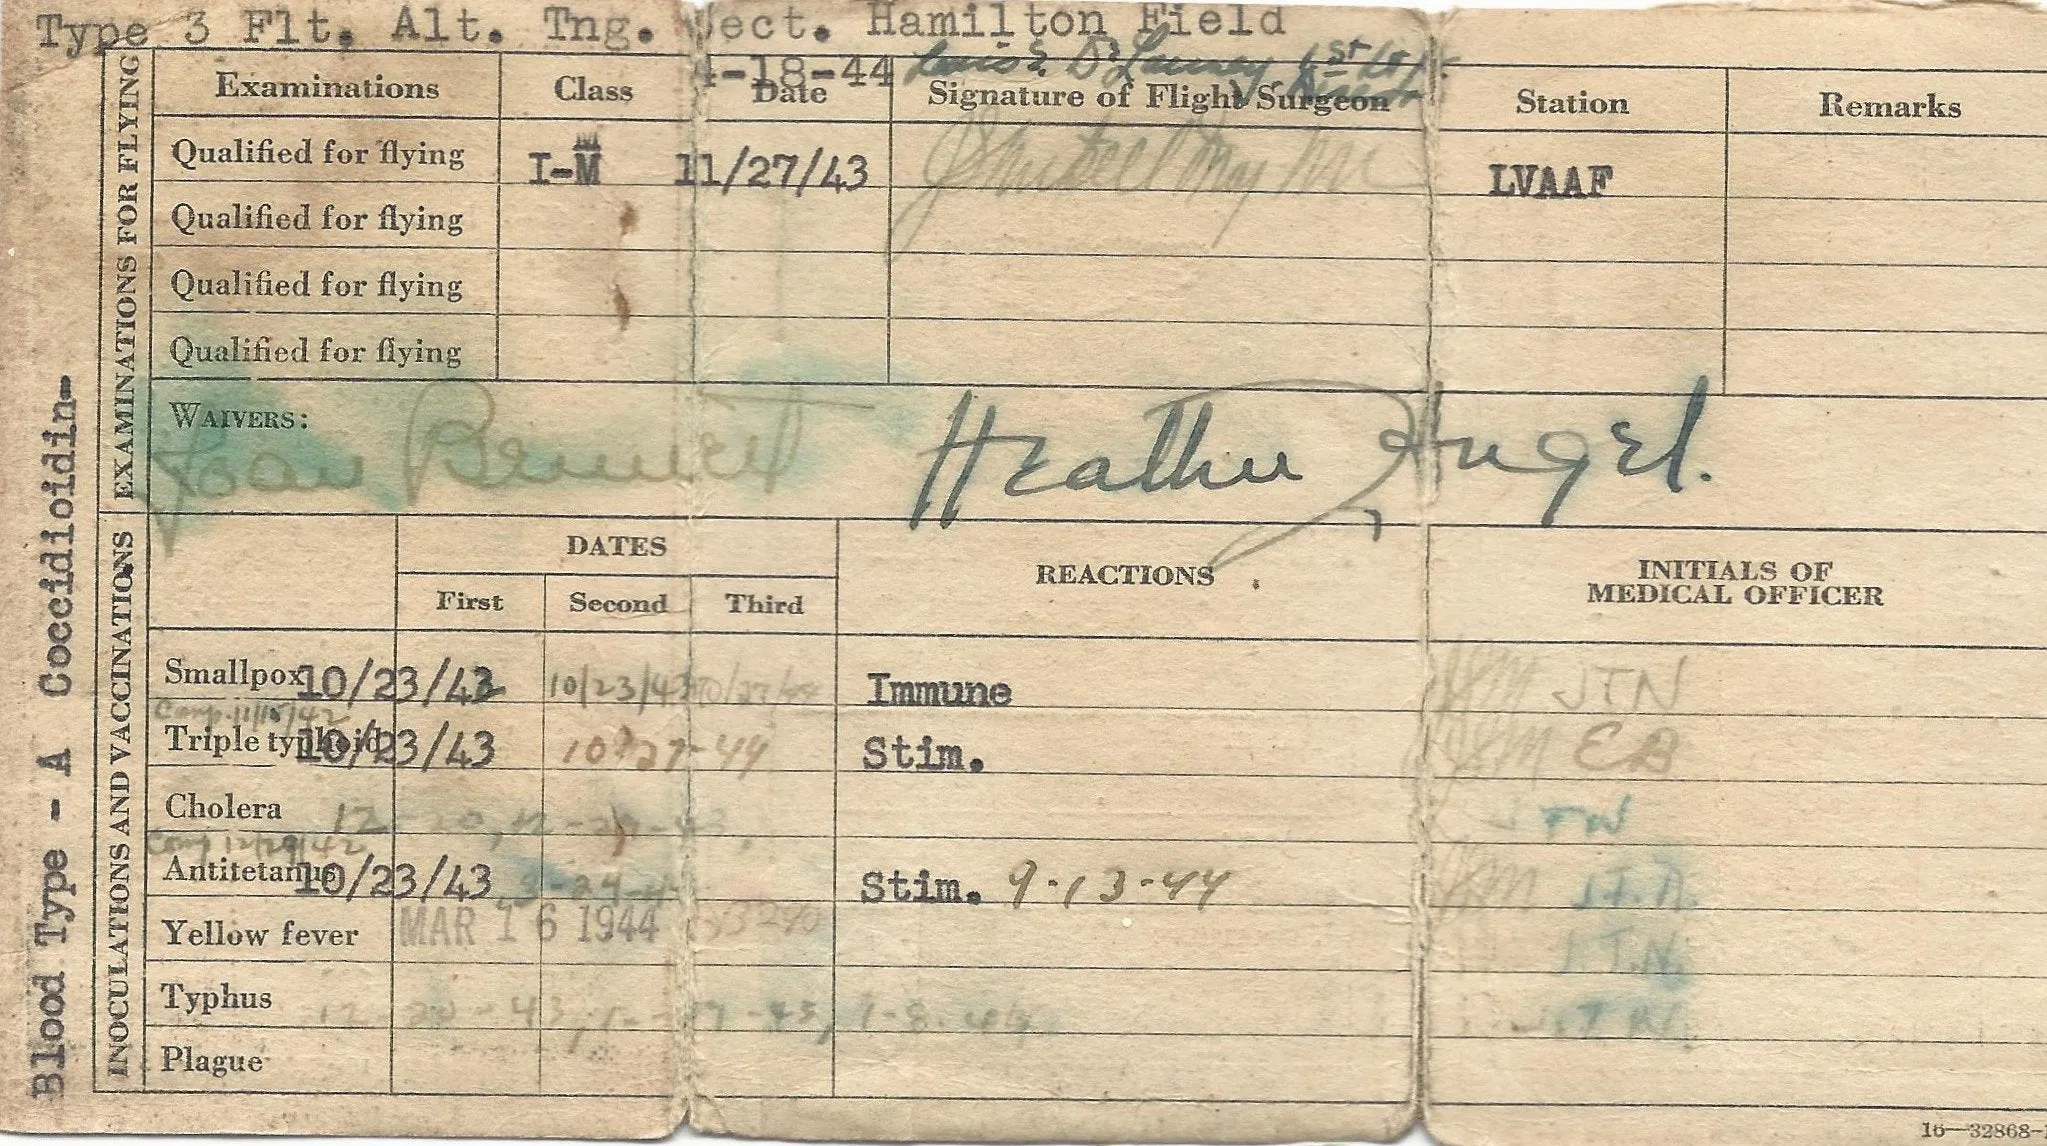 Type 3 Flt. Alt. Tng. Sect. Hamilton Field
4-18-44 Louis 1st Lt
EXAMINATIONS FOR FLYING
Examinations Class Date Signature of Flight Surgeon Station Remarks
Qualified for flying I-M 11/27/43 LVAAF
Qualified for flying
Qualified for flying
Qualified for flying
WAIVERS:
Joan Bennett Heather Angel.
INOCULATIONS AND VACCINATIONS
DATES REACTIONS INITIALS OF MEDICAL OFFICER
First Second Third
Smallpox 10/23/43 10/23/43 Immune JTN
Comp. 11/15/42
Triple typhoid 10/23/43 10-27-44 Stim. EB
Cholera 12-20, 12-29-43
Comp 12/29/42
Antitetanus 10/23/43 Stim. 9-13-44
Yellow fever MAR 16 1944 J.T.N.
Typhus
Plague
Blood Type - A Coccidioidin-
16—32868-1